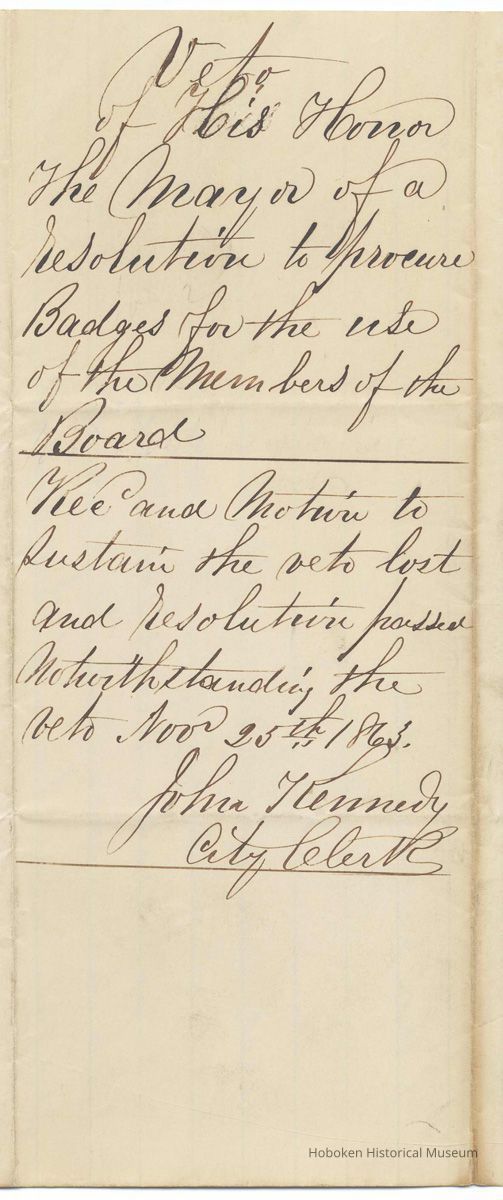 Veto
of His Honor
The Mayor of a
resolution to procure
Badges for the use
of the Members of the
Board
Recd and Motion to
sustain the veto lost
and resolution passed
Notwithstanding the
veto Novr 25th 1863.
John Kennedy
City Clerk
Hoboken Historical Museum